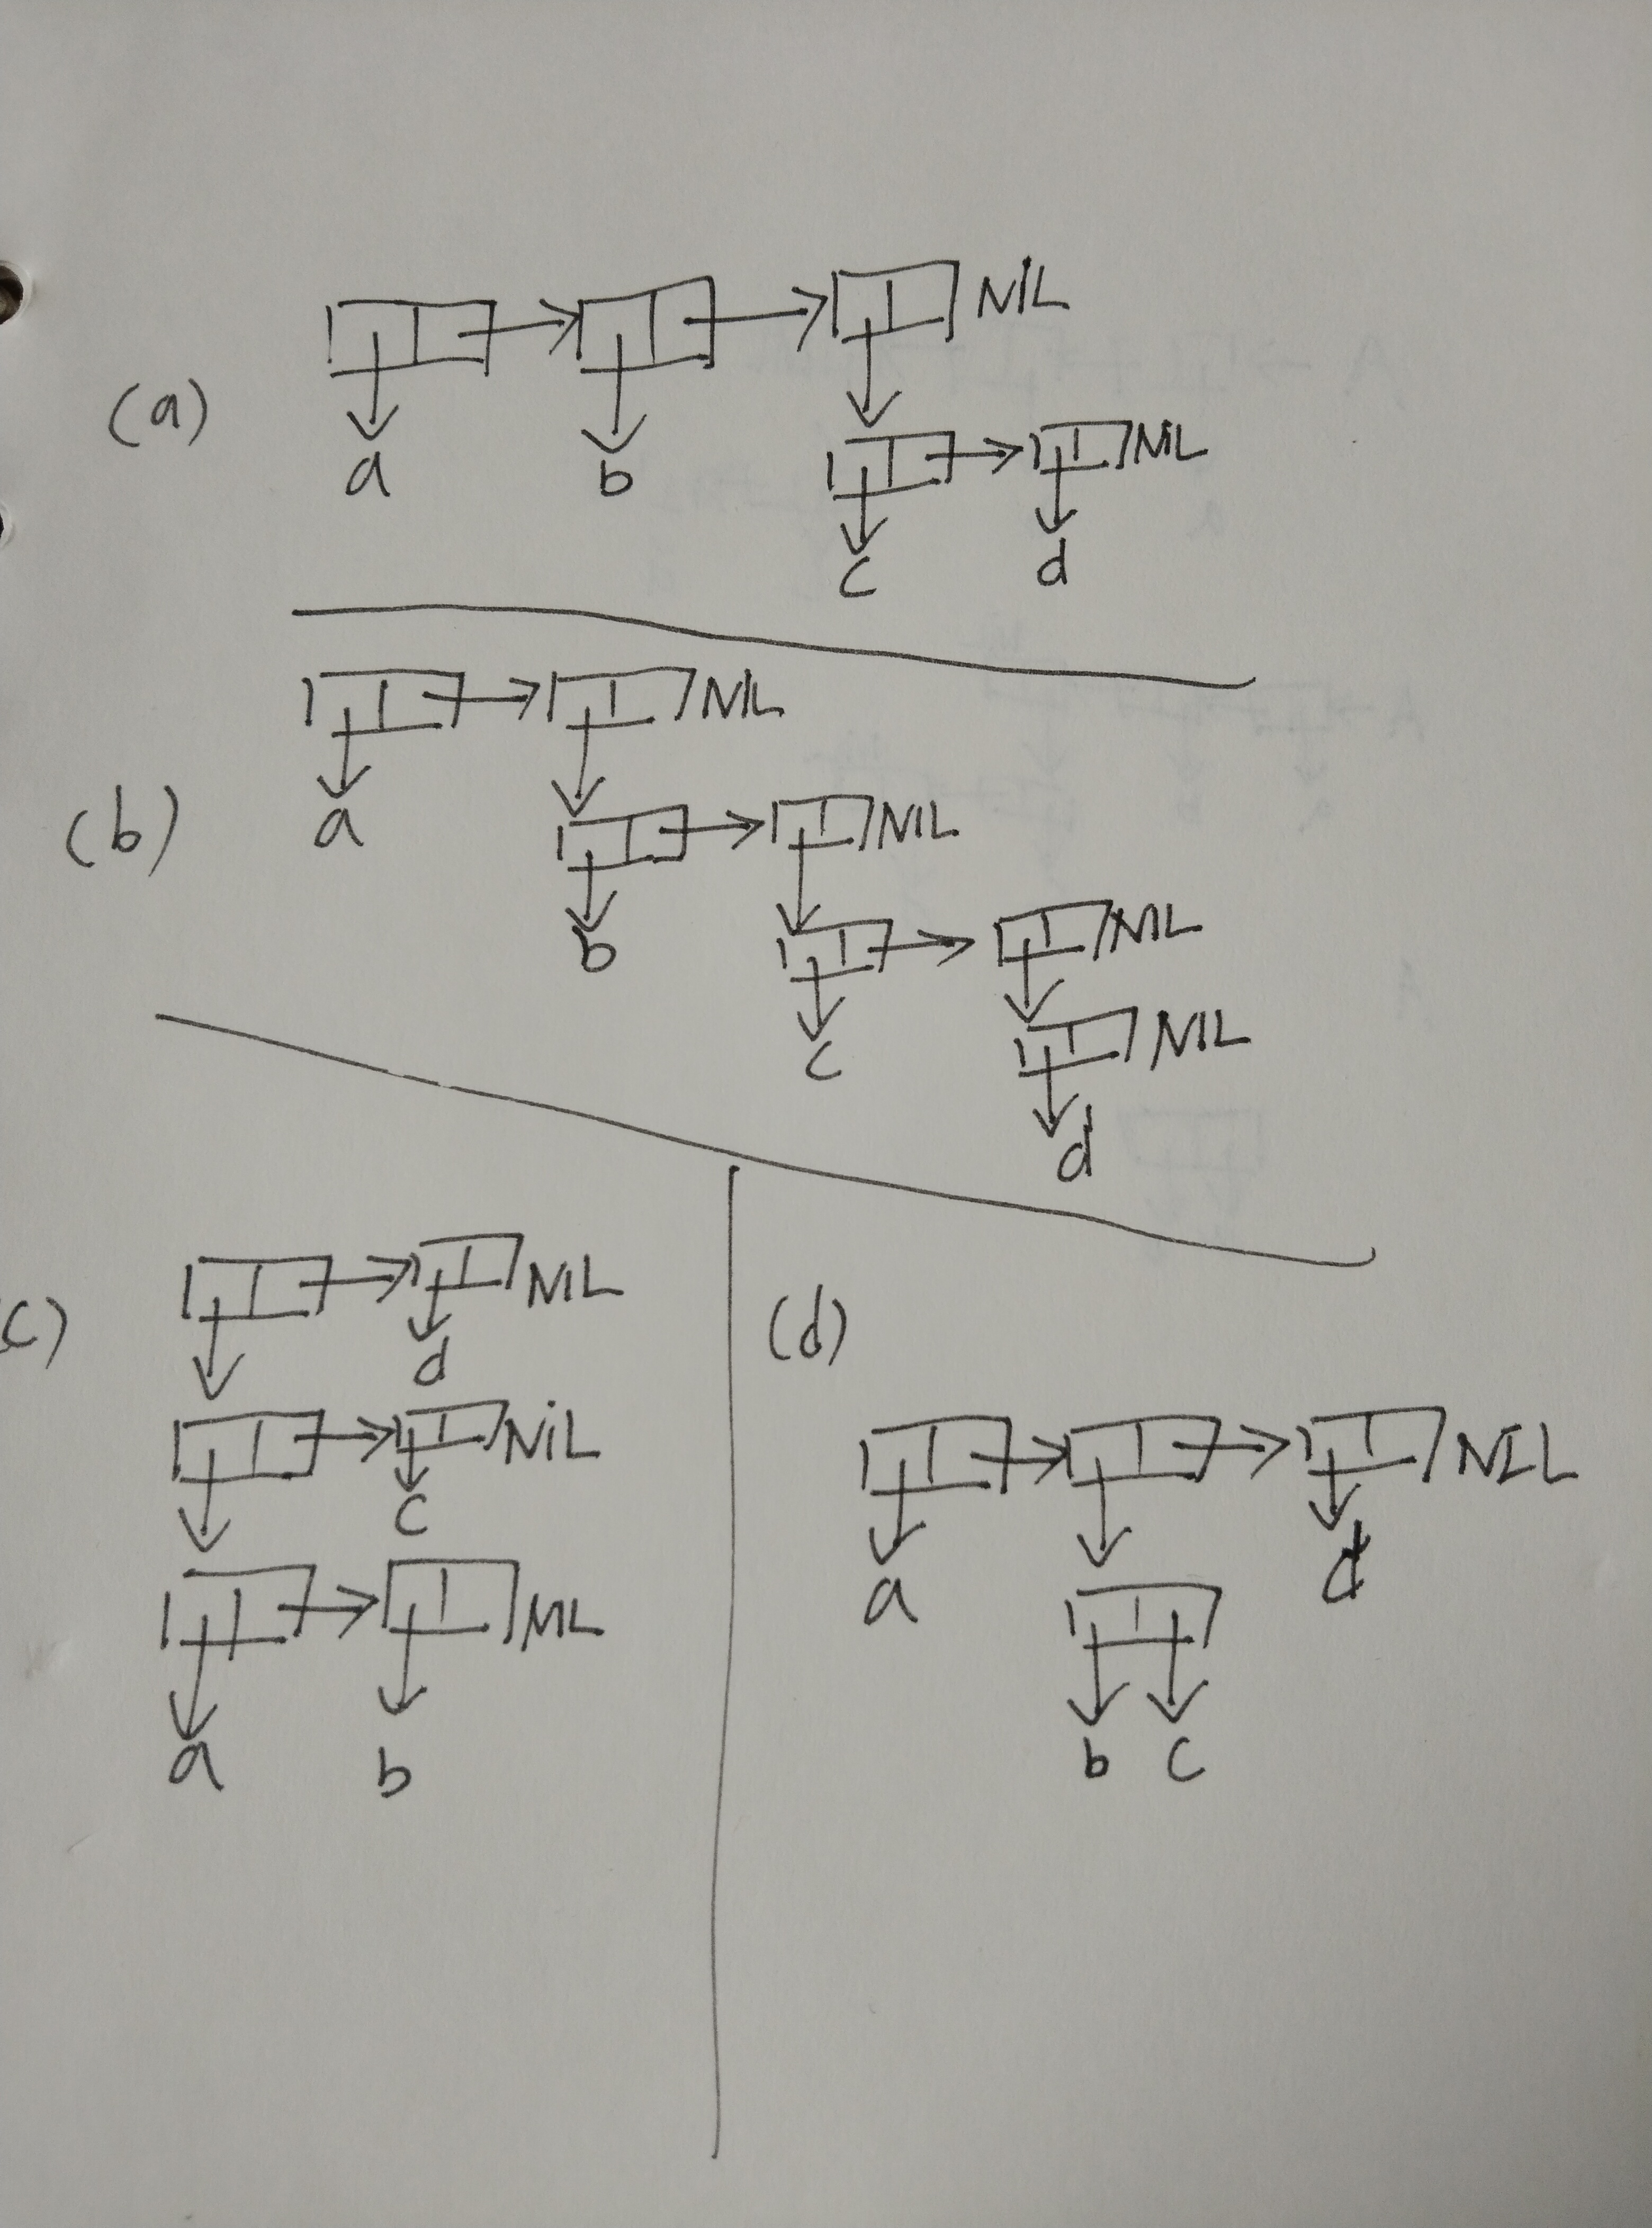 NIL
(a)
a b
NIL
c d
NIL
(b)
a
NIL
b
NIL
c
NIL
d
(c)
NIL
d
NIL
c
NIL
a b
(d)
NIL
a d
b c